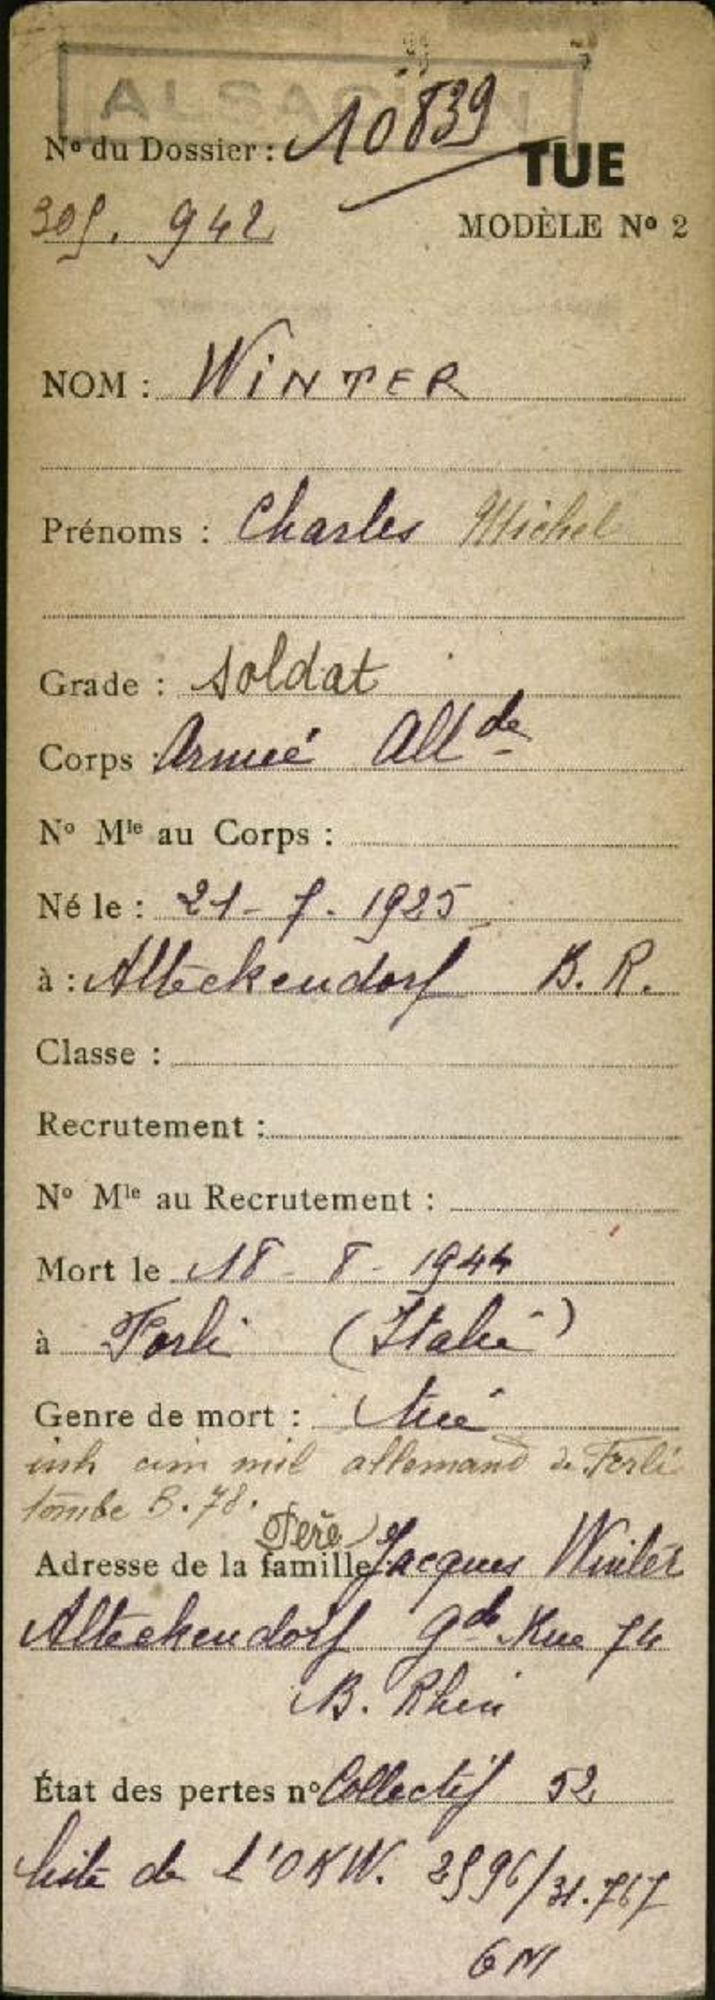 ALSACIEN
N° du Dossier : 10839
TUE
942
MODÈLE N° 2
NOM : WINTER
Prénoms : Charles Michel
Grade : soldat
Corps : Armée All de
N° Mle au Corps :
Né le : 21- 7. 1925
à : Alteckendorf B. R.
Classe :
Recrutement :
N° Mle au Recrutement :
Mort le 18 - 8 - 1944
à Forli (Italie)
Genre de mort : tué
inh cim mil allemand de Forli
tombe B. 78.
Père
Adresse de la famille Jacques Winter
Alteckendorf gde Rue 74
B. Rhin
État des pertes n° Collectif 52
liste de l'OKW.